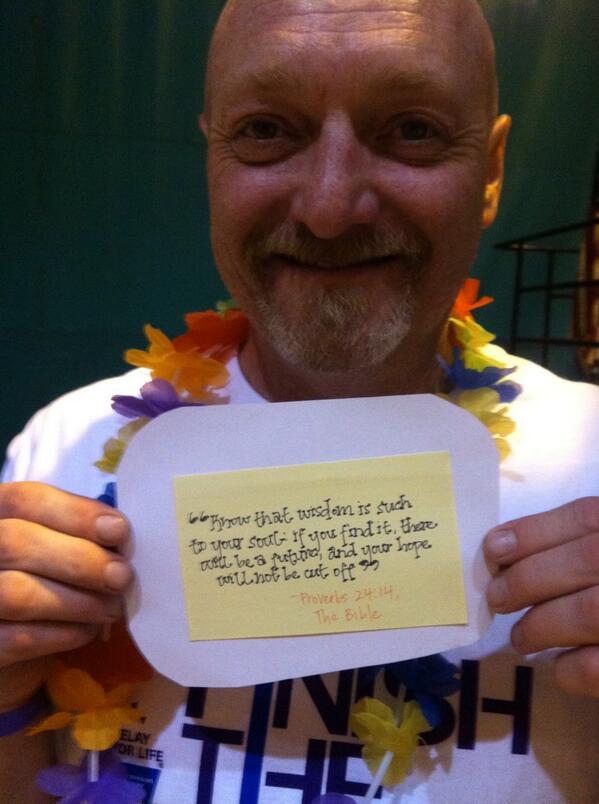 “Know that wisdom is such
to your soul: if you find it, there
will be a future, and your hope
will not be cut off”
-Proverbs 24:14,
The Bible
ELAY
OR LIFE
FINISH
THE